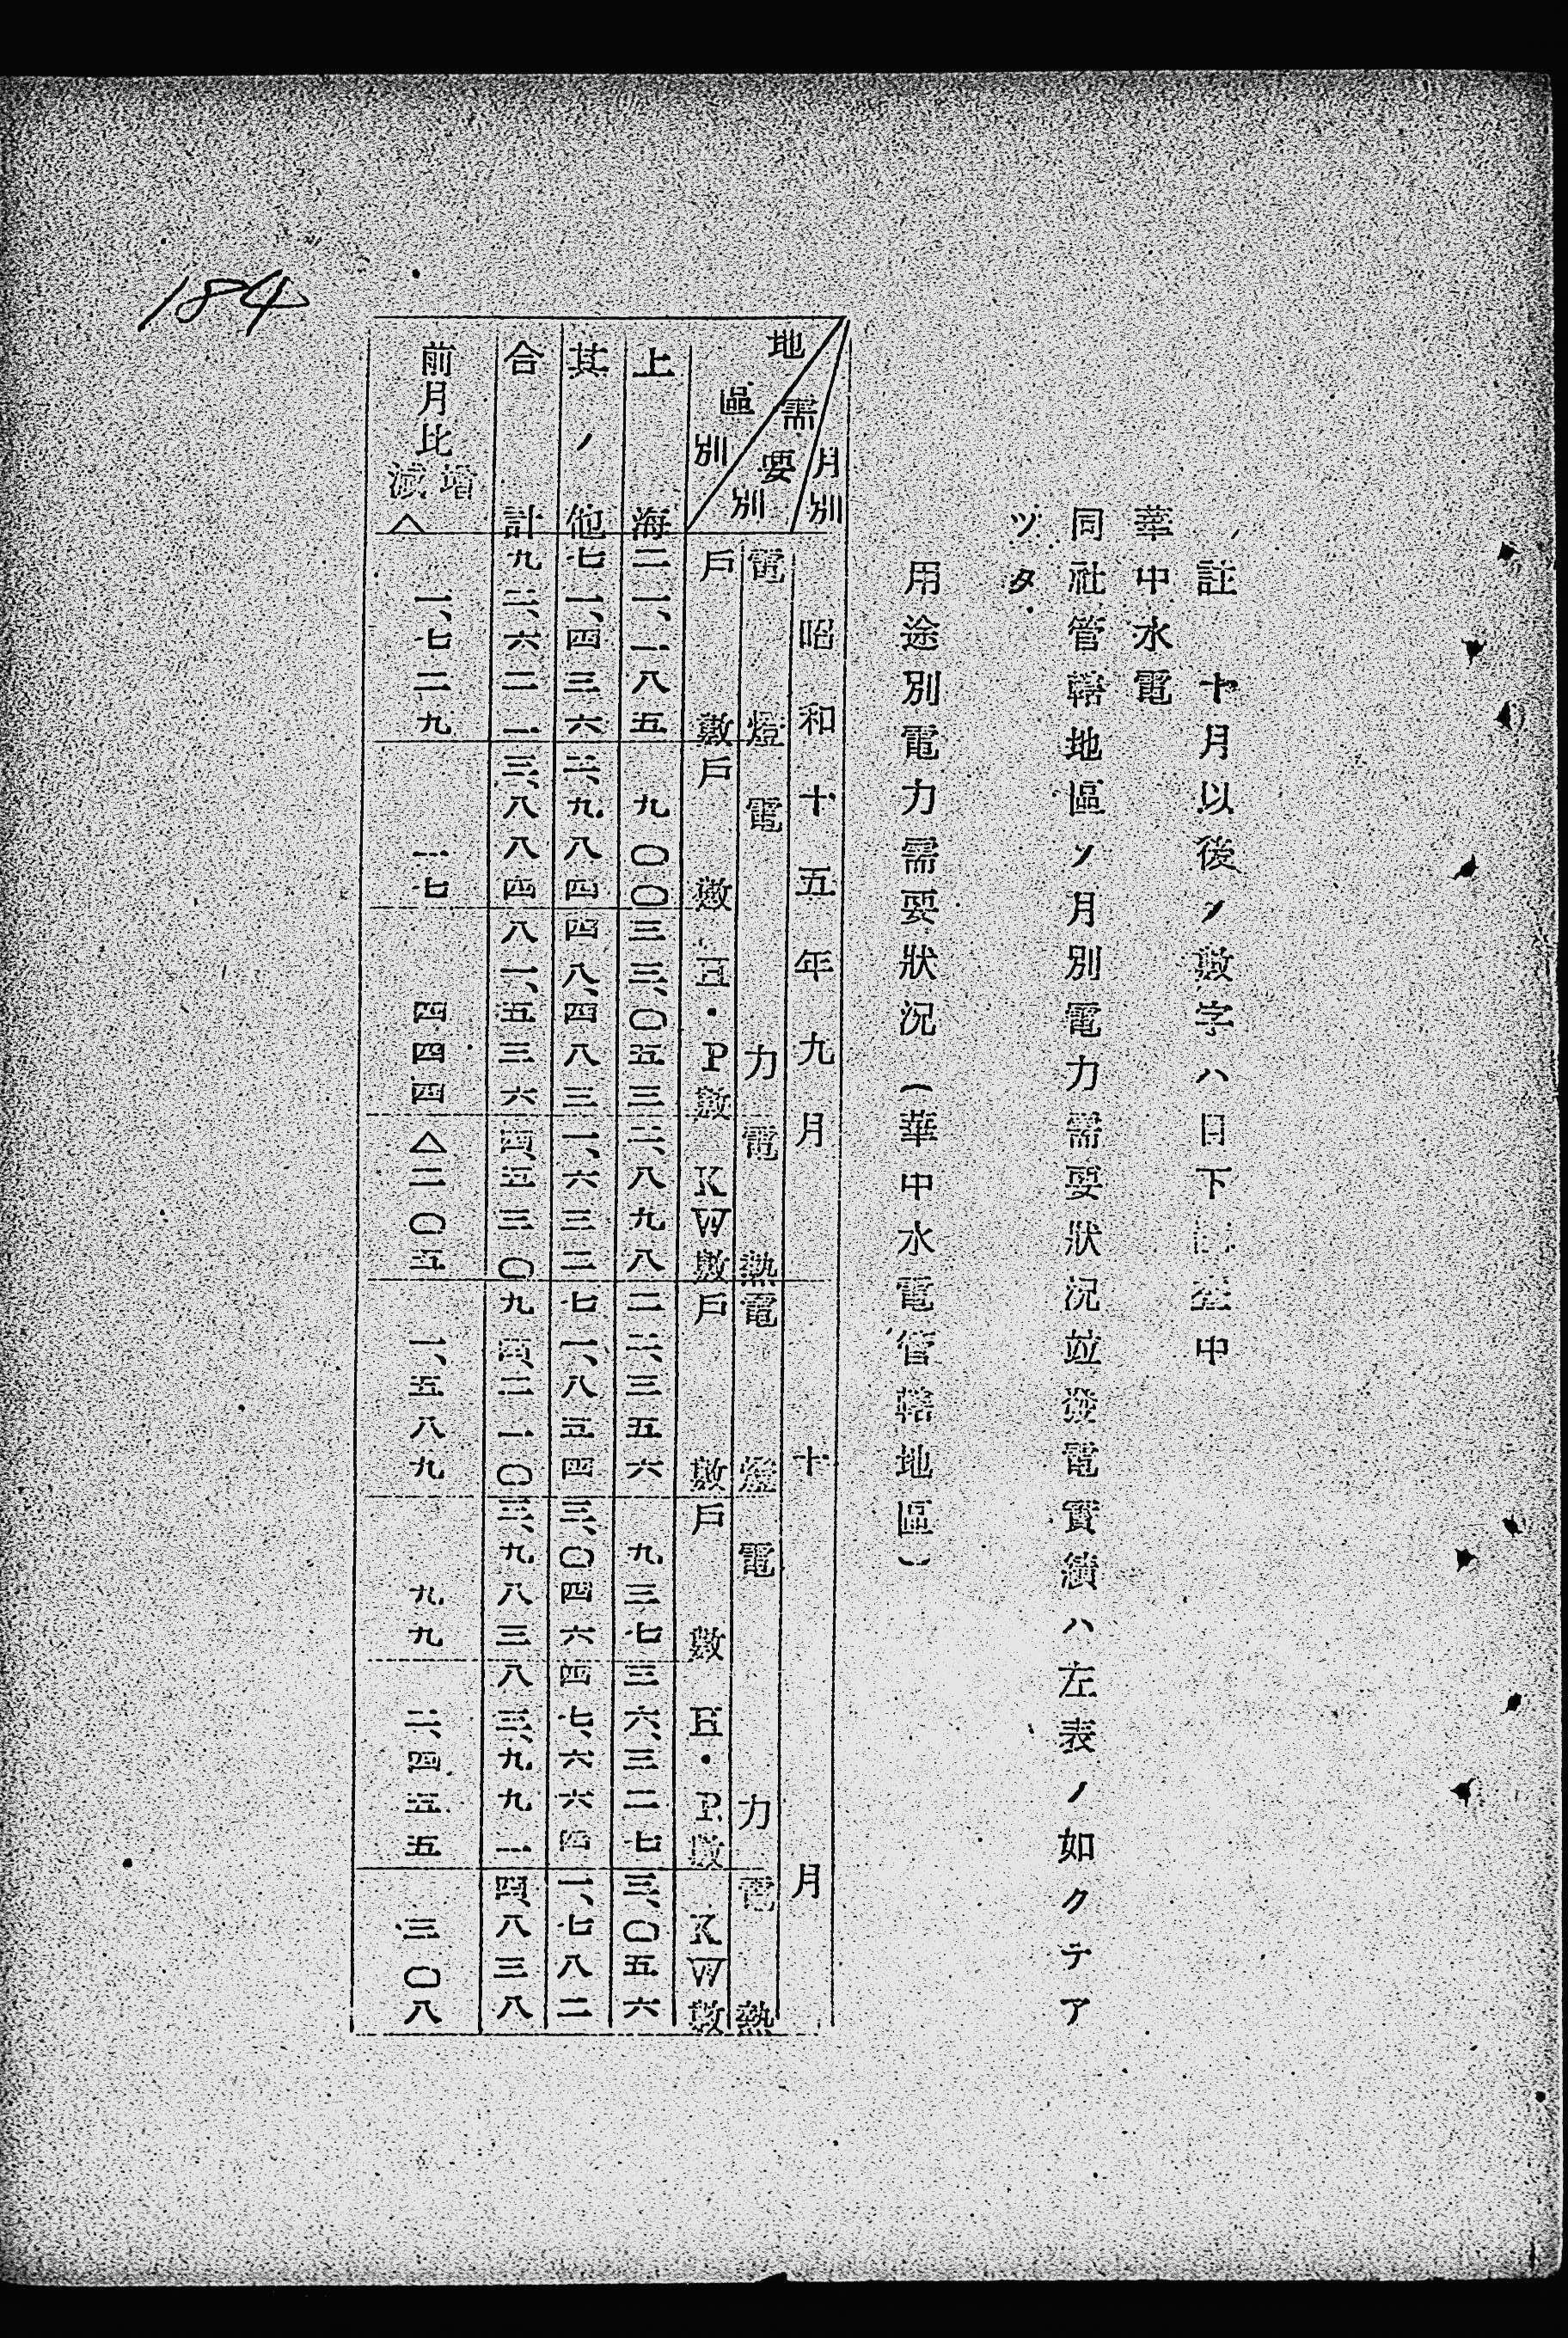 註 十月以後ノ數字ハ目下調査中
華中水電
同社管轄地區ノ月別電力需要狀況竝發電實績ハ左表ノ如クテア
ツタ
用途別電力需要狀況(華中水電管轄地區)
月別 昭和十五年九月 十月
需要別 電燈 電力 電熱 電燈 電力 電熱
地區別 戶數 戶數 H・P數 KW數 戶數 戶數 H・P數 KW數
上海 二一、一八五 九〇〇 三三、〇五三 二、八九八 二二、三五六 九三七 三六、三二七 三、〇五六
其ノ他 七一、四三六 二、九八四 四八、四八三 一、六三二 七一、八五四 三、〇四六 四七、六六四 一、七八二
合計 九二、六二一 三、八八四 八一、五三六 四、五三〇 九四、二一〇 三、九八三 八三、九九一 四、八三八
前月比增減△ 一、七二九 一七 四四四 △二〇五 一、五八九 九九 二、四五五 三〇八
184